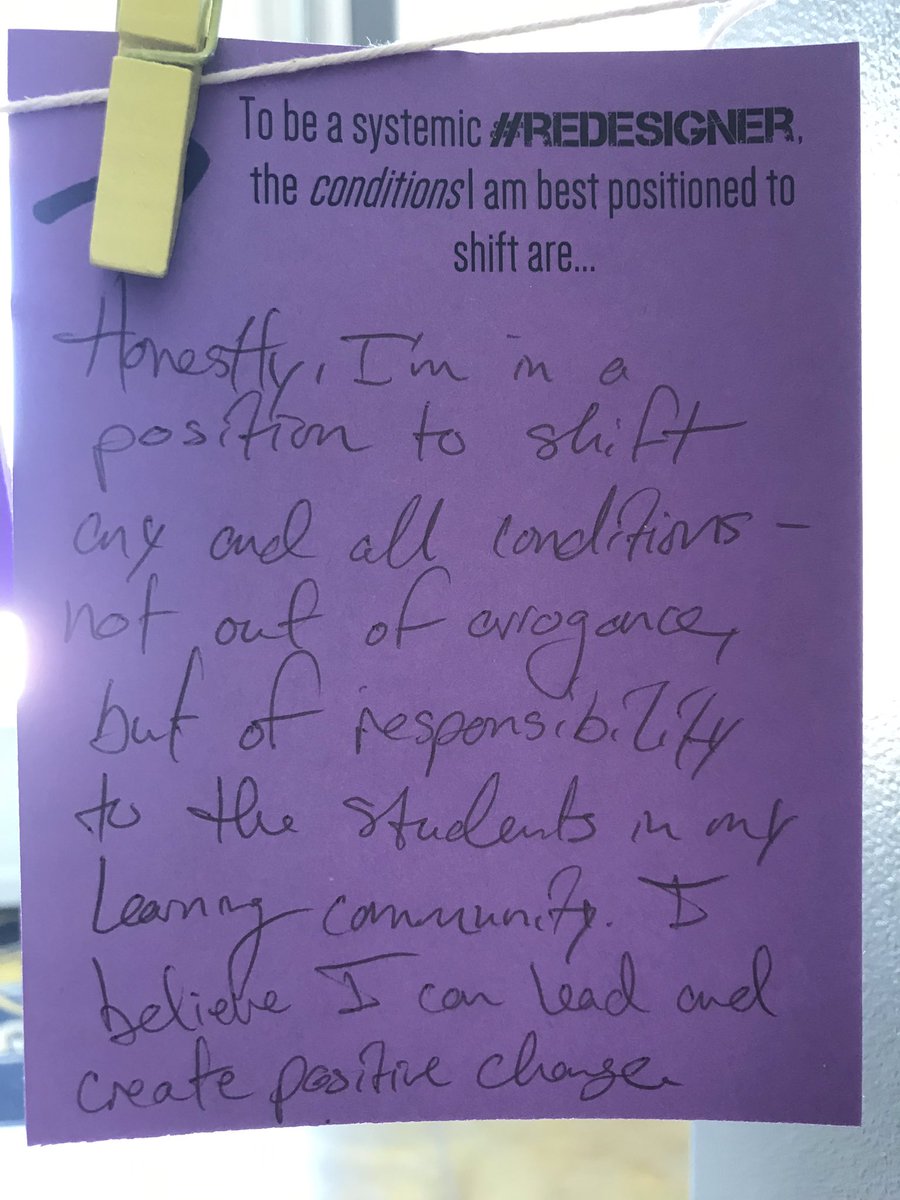 To be a systemic #REDESIGNER,
the conditions I am best positioned to
shift are...
Honestly, I'm in a
position to shift
any and all conditions –
not out of arrogance,
but of responsibility
to the students in my
Learning community. I
believe I can lead and
create positive change.